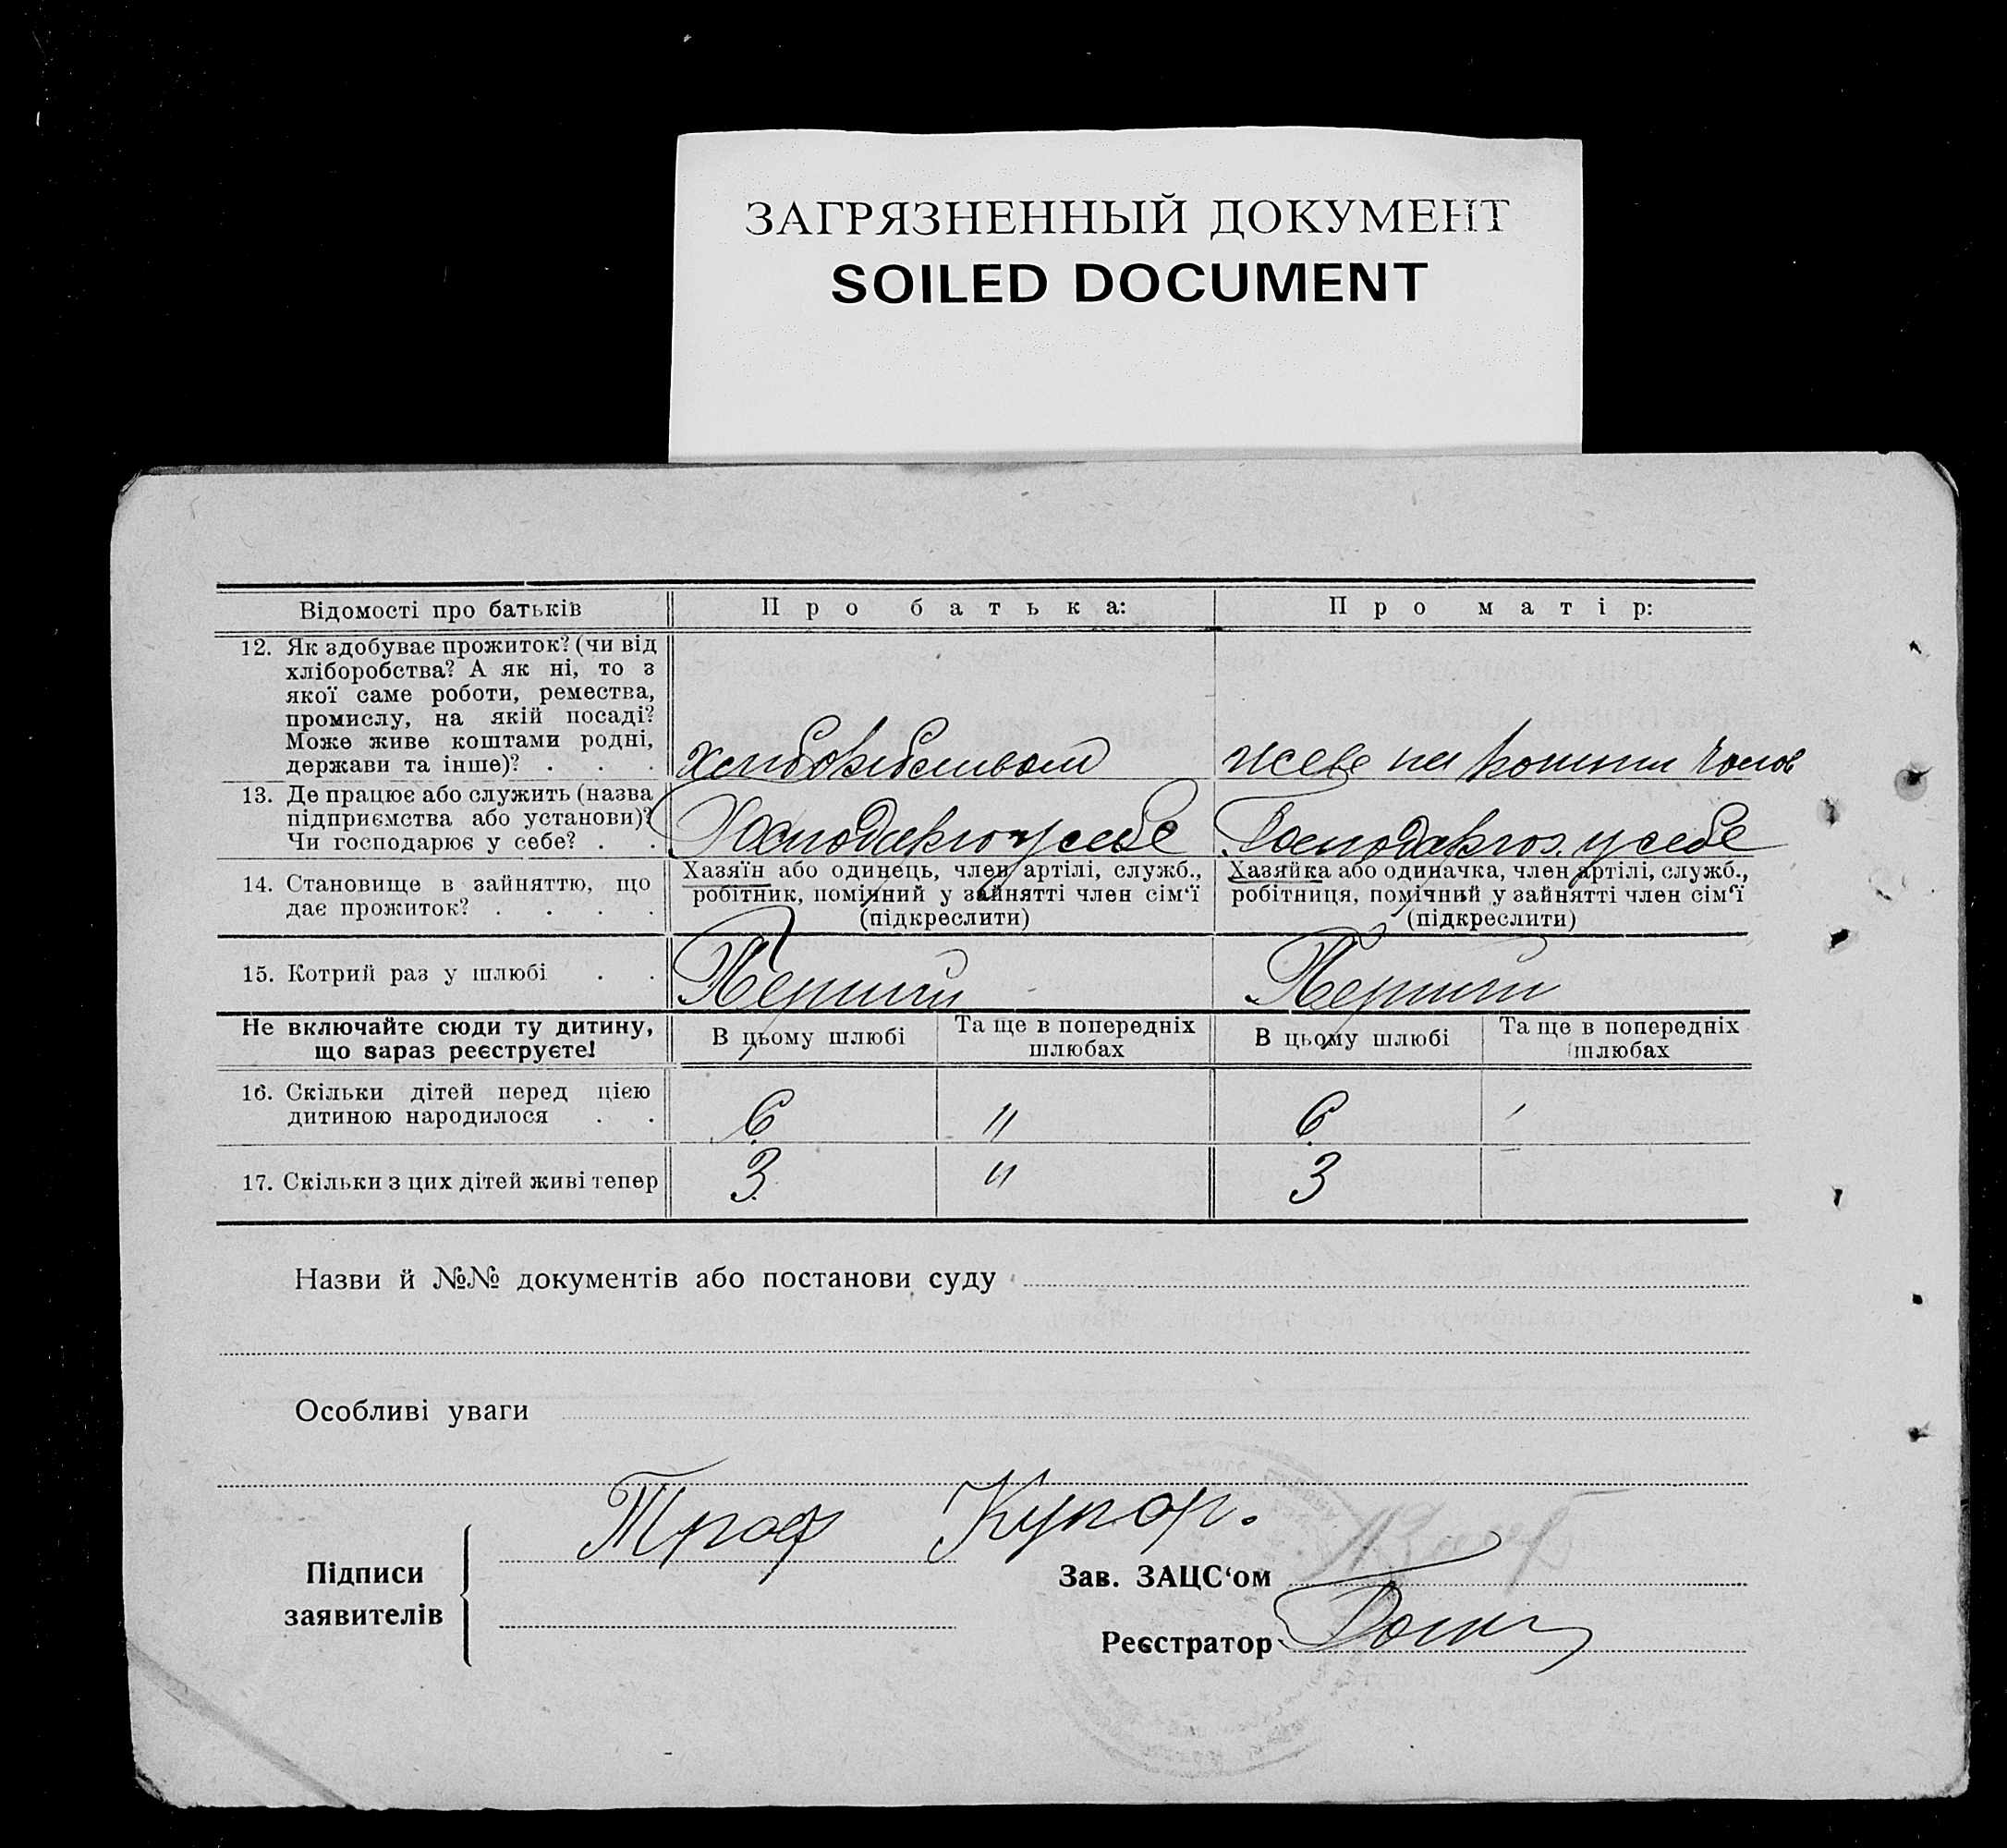 ЗАГРЯЗНЕННЫЙ ДОКУМЕНТ
SOILED DOCUMENT
Відомості про батьків
Про батька:
Про матір:
12. Як здобуває прожиток? (чи від
хліборобства? А як ні, то з
якої саме роботи, ремества,
промислу, на якій посаді?
Може живе коштами родні,
держави та інше)? . . .
живе на кошти чолов
13. Де працює або служить (назва
підприємства або установи)?
Чи господарює у себе? . .
Господарює у себе
Господарює у себе
14. Становище в зайняттю, що
дає прожиток? . . . .
Хазяїн або одинець, член артілі, служб.,
робітник, помічний у зайнятті член сім‘ї
(підкреслити)
Хазяйка або одиначка, член артілі, служб.,
робітниця, помічний у зайнятті член сім‘ї
(підкреслити)
15. Котрий раз у шлюбі . .
Перший
Перший
Не включайте сюди ту дитину,
що зараз реєструєте!
В цьому шлюбі
Та ще в попередніх
шлюбах
В цьому шлюбі
Та ще в попередніх
шлюбах
16. Скільки дітей перед цією
дитиною народилося . .
6
"
6
17. Скільки з цих дітей живі тепер
3
"
3
Назви й №№ документів або постанови суду
Особливі уваги
Підписи
заявителів
Зав. ЗАЦС‘ом
Реєстратор